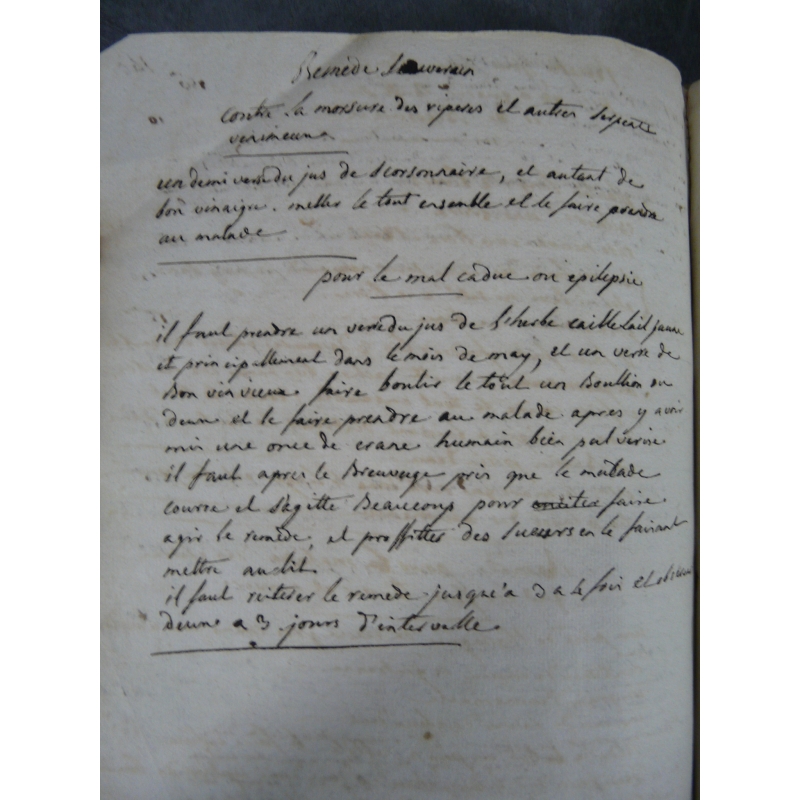 Remède Souverain
contre la morsure des viperes et autres serpents
venimeux
un demi verre du jus de scorsonnaire, et autant de
bon vinaigre. mettes le tout ensemble et le faire prendre
au malade
pour le mal caduc ou épilepsie
il faut prendre un verre du jus de l'herbe caillelait jaune
et principallement dans le mois de may, et un verre de
Bon vin vieux faire boulir le tout un Boullion ou
deux et le faire prendre au malade apres y avoir
mis une once de crane humain bien pulverisé
il faut apres le Breuvage pris que le malade
courre et s'agitte Beaucoup pour faire
agir le remède, et proffitter des sueurs en le faisant
mettre au lit
il faut reiterer le remede jusqu'a 3 a 4 fois et
deux a 3 jours d'intervalle.